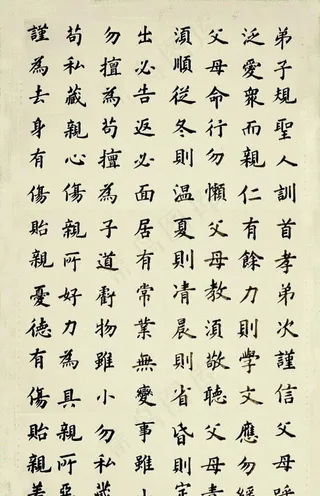 弟子規聖人訓首孝弟次謹信父母呼
泛愛眾而親仁有餘力則學文應勿緩
父母命行勿懶父母教須敬聽父母責
須順從冬則温夏則凊晨則省昏則定
出必告返必面居有常業無變事雖小
勿擅為苟擅為子道虧物雖小勿私藏
苟私藏親心傷親所好力為具親所惡
謹為去身有傷貽親憂德有傷貽親羞